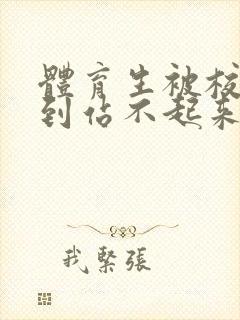 體育生被校
到佔不起來
我緊張